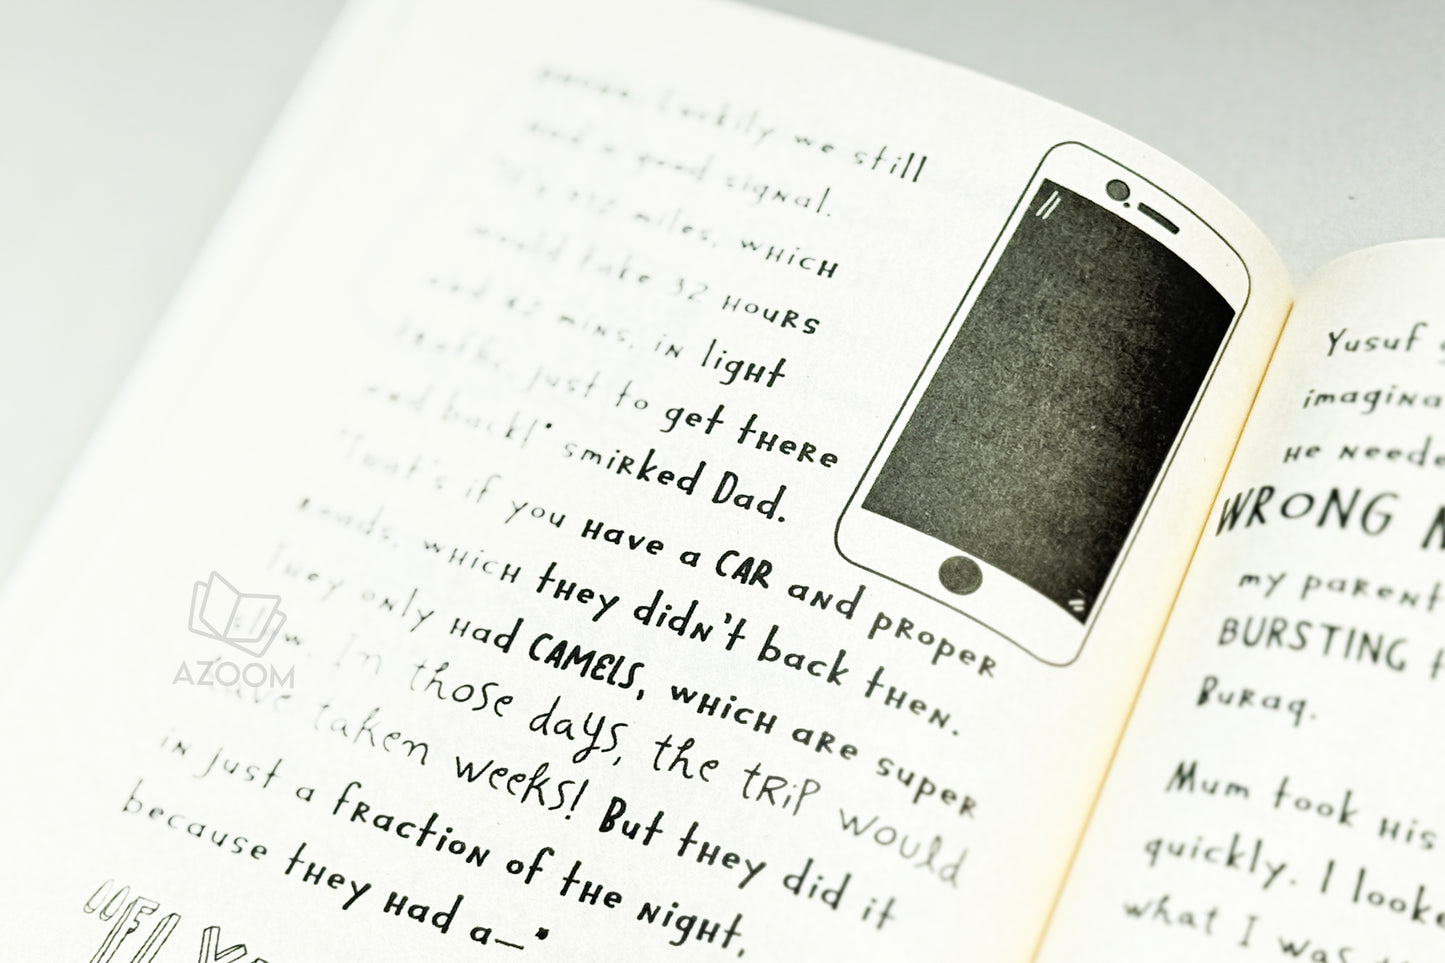 Luckily we still
and a good signal.
miles, which
would take 32 HOURS
and 42 mins, in light
traffic, just to get there
and back!" smirked Dad.
"That's if you have a CAR and proper
roads, which they didn't back then.
They only had CAMELS, which are super
slow. In those days, the trip would
have taken weeks! But they did it
in just a fraction of the night,
because they had a—"
"FLY
Yusuf
imagina
He neede
WRONG
my parent
BURSTING
Buraq.
Mum took his
quickly. I looke
what I was
AZOOM